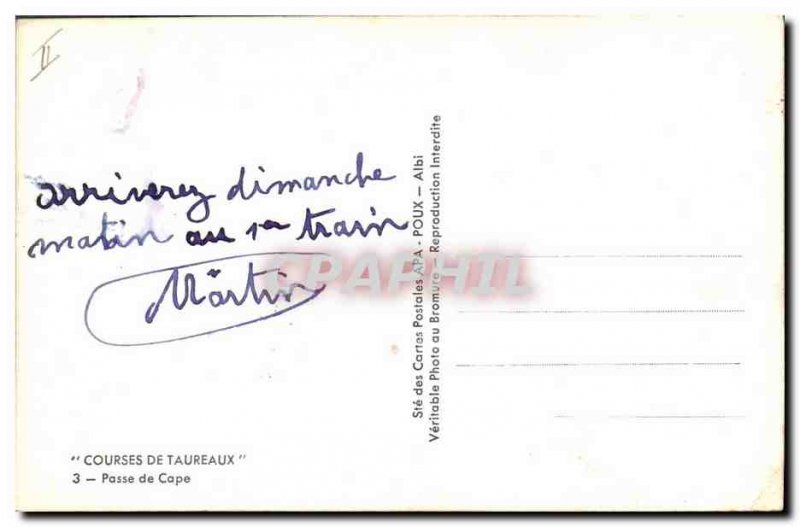 II
arriverez dimanche
matin au 1er train
Märtin
CPAPHIL
" COURSES DE TAUREAUX "
3 — Passe de Cape
Sté des Cartes Postales APA - POUX — Albi
Véritable Photo au Bromure — Reproduction Interdite